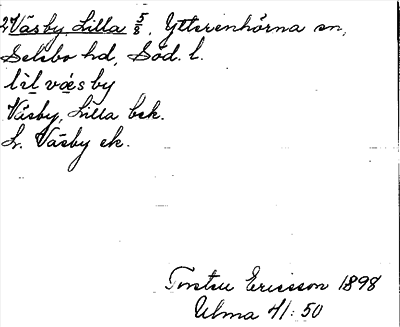 2 Väsby, Lilla 5/8, Ytterenhörna sn,
Selebo hd, Söd. l.
lìl væ̀s by
Väsby, Lilla bsk.
L. Väsby ek.
Torsten Ericsson 1898
Ulma 71:50